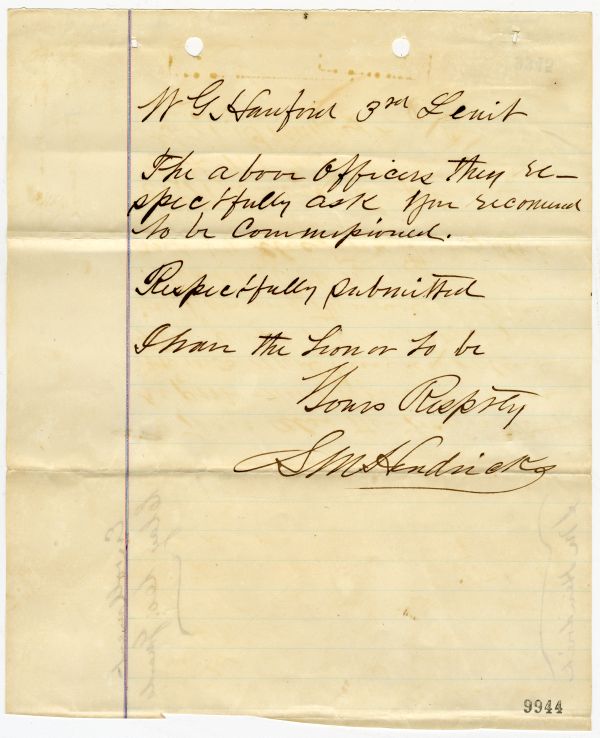 W G Hanford 3rd Leuit
The above Officers they re-
spectfully ask you recomend
to be Commissioned.
Respectfully submitted
I have the honor to be
Yours Respctly
S M Hendricks
9944